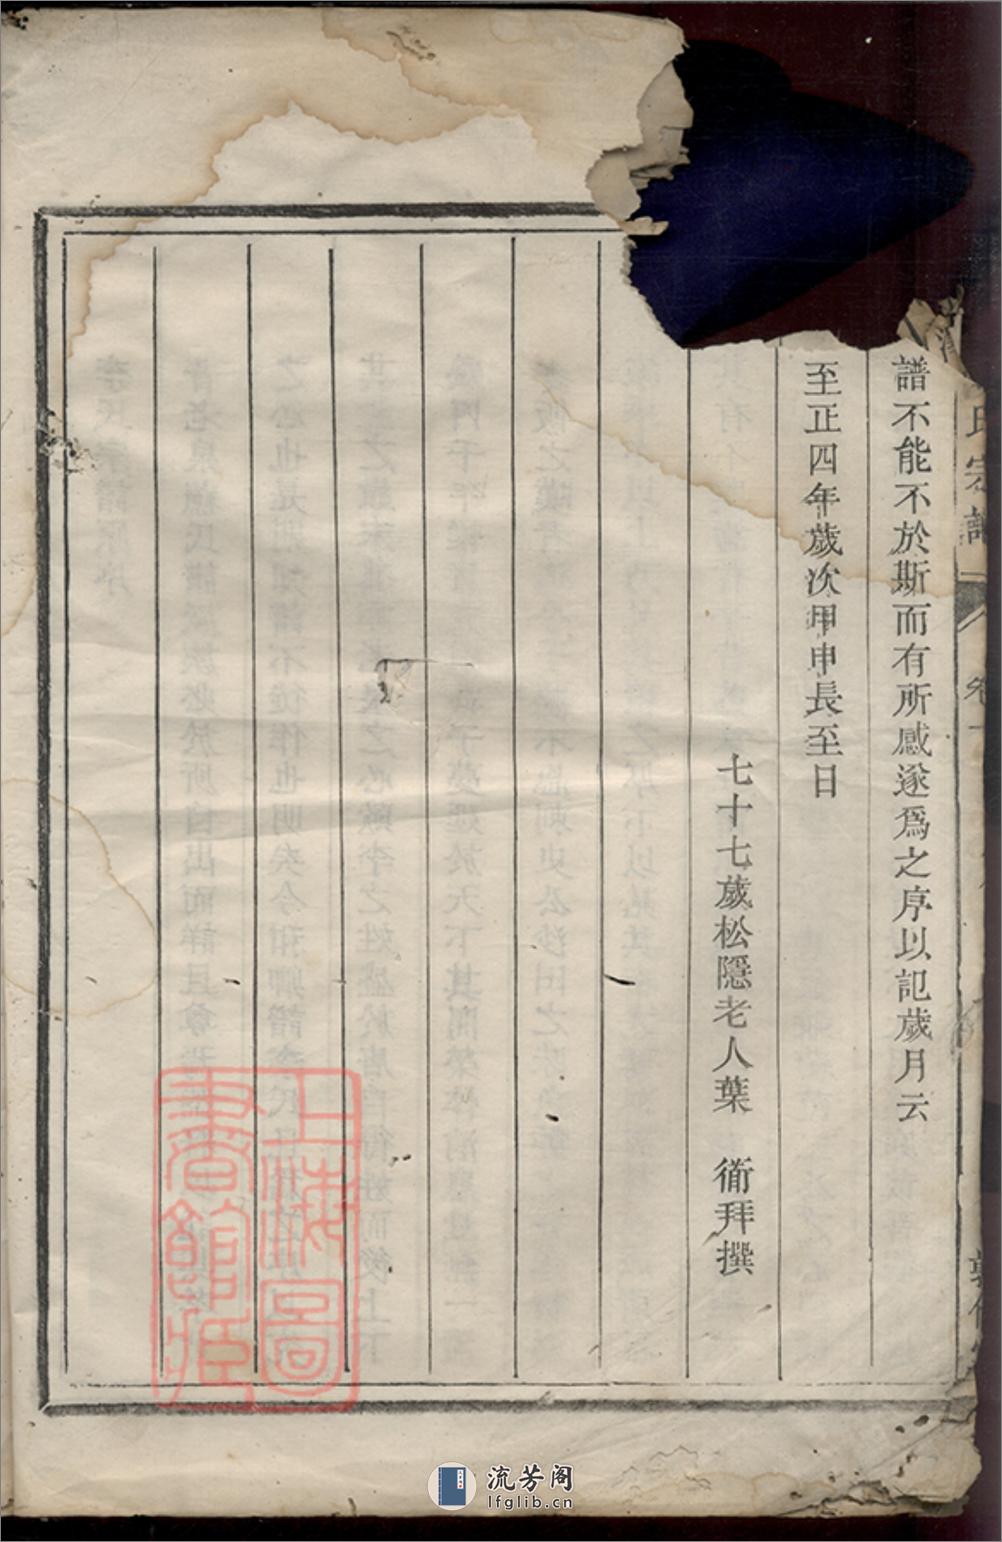 譜不能不於斯而有所感遂爲之序以記歲月云
至正四年歲次甲申長至日
七十七歲松隱老人葉　衕拜撰
氏宗譜
卷一
上海圖
書館藏
流芳阁
lfglib.cn